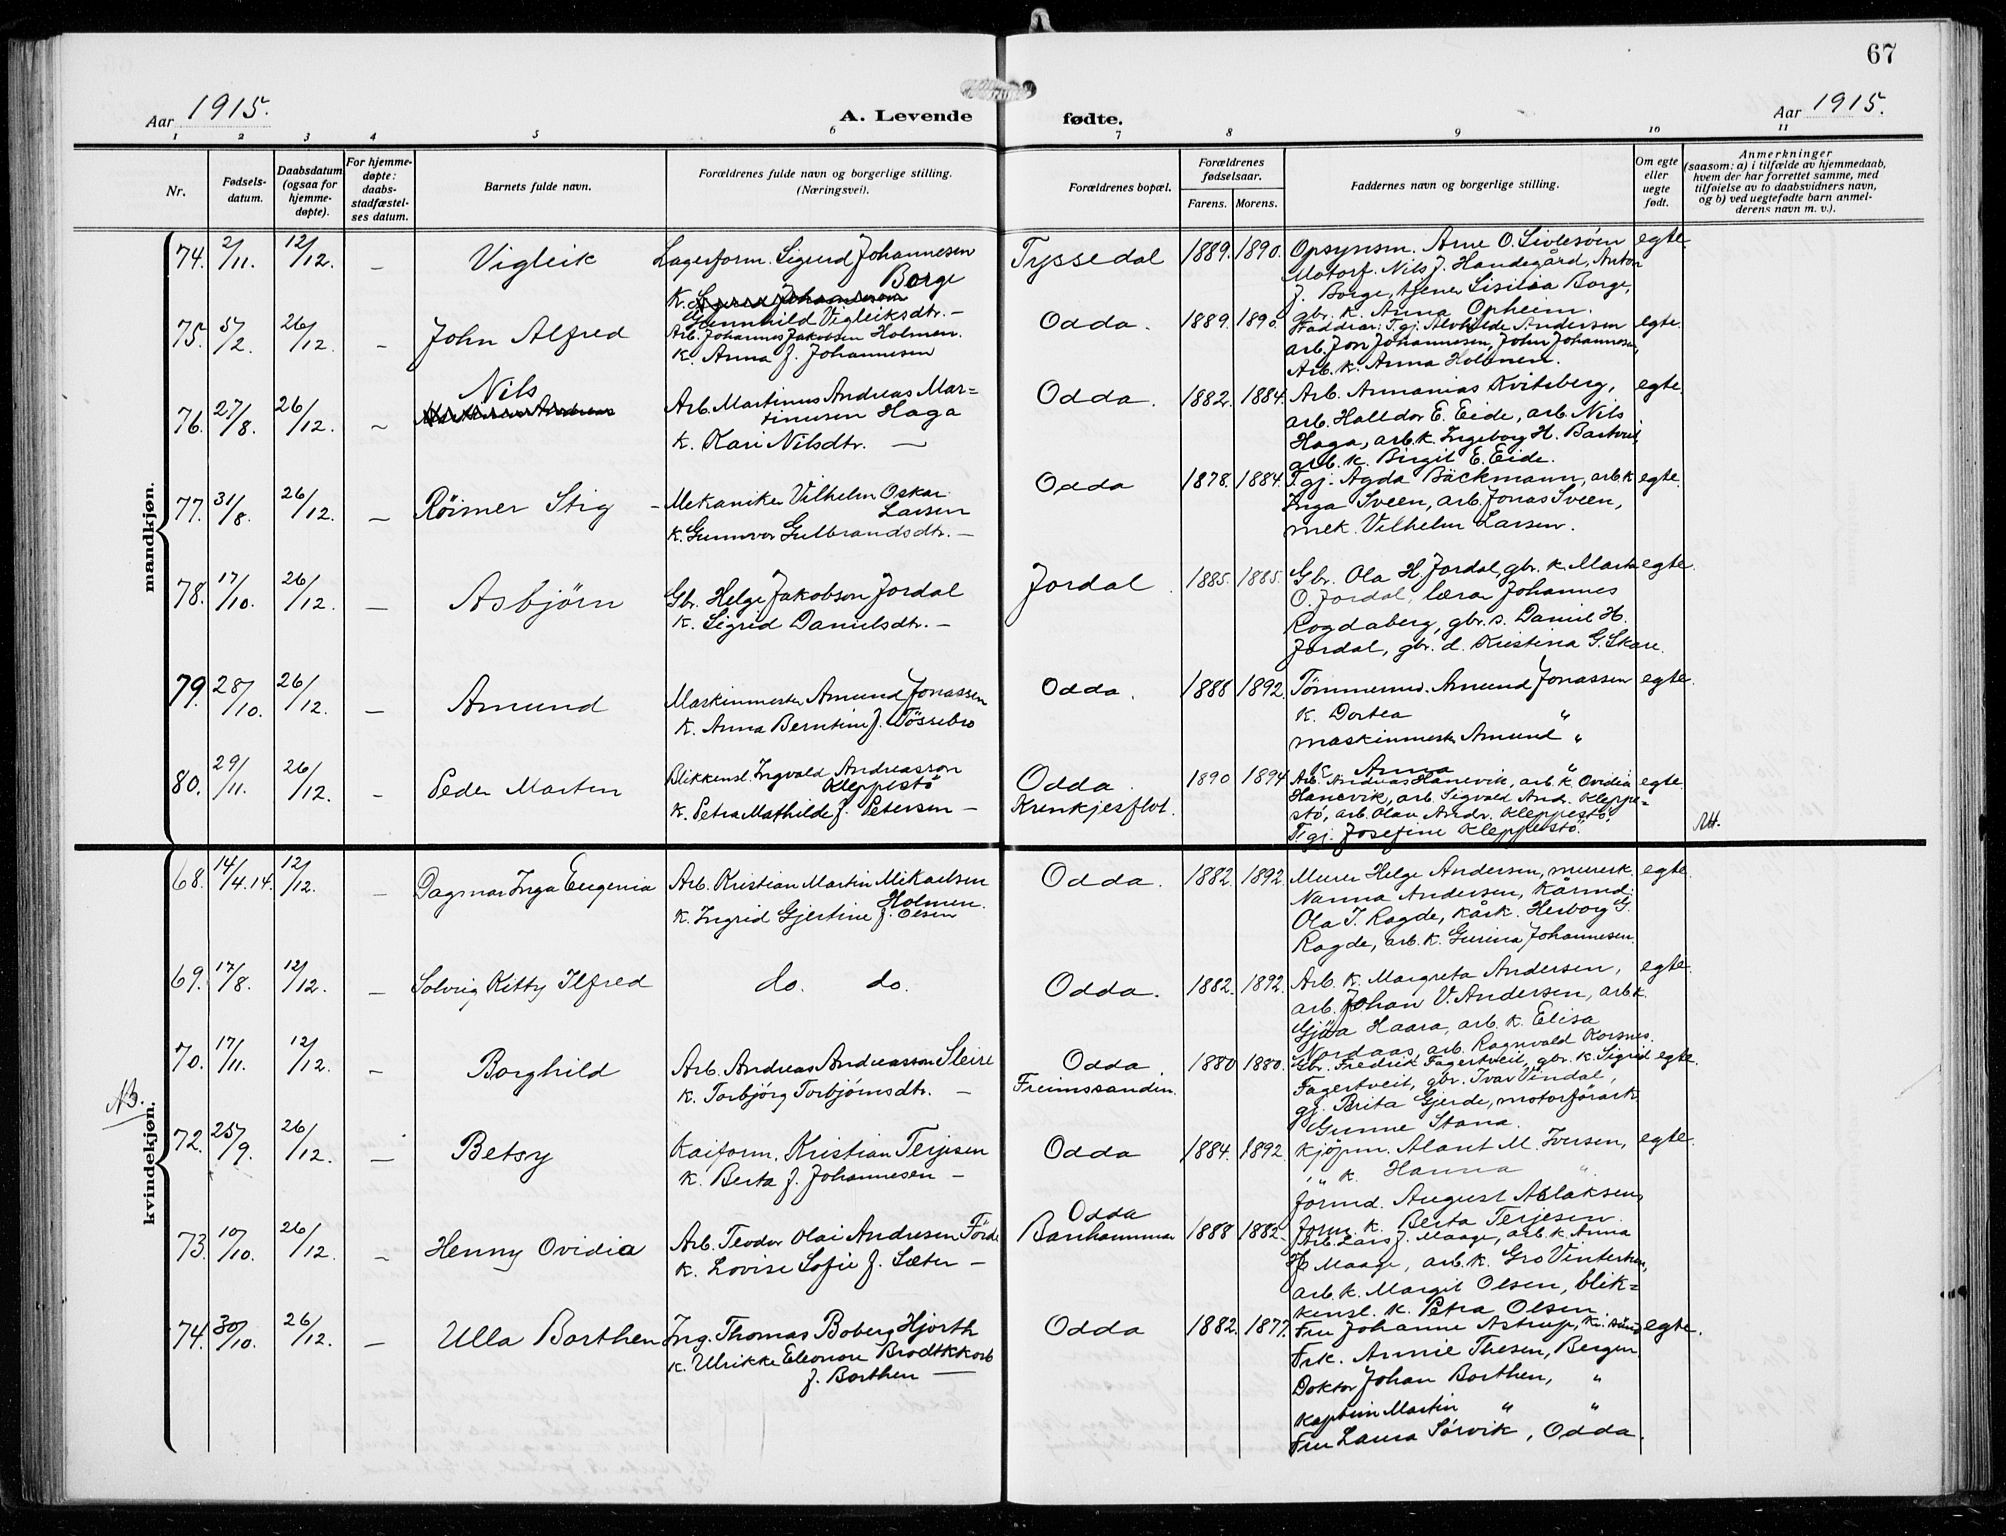 67
Aar 1915.
A. Levende fødte.
Aar 1915.
1 2 3 4 5 6 7 8 9 10 11
Nr.
Fødsels-
datum.
Daabsdatum
(ogsaa for
hjemme-
døpte).
For hjemme-
døpte:
daabs-
stadfæstel-
ses datum.
Barnets fulde navn.
Forældrenes fulde navn og borgerlige stilling.
(Næringsvei).
Forældrenes bopæl.
Forældrenes
fødselsaar.
Farens. Morens.
Faddernes navn og borgerlige stilling.
Om egte
eller
uegte
født.
Anmerkninger
(saasom: a) i tilfælde av hjemmedaab,
hvem der har forrettet samme, med
tilføielse av to daabsvidners navn,
og b) ved uegtefødte barn anmel-
derens navn m. v.).
mandkjøn.
74. 2/11. 12/12. – Vigleik
Lagerform. Sigurd Johannesen
Borge
K. Gunnhild Vigleiksdtr. –
Tyssedal 1889. 1890.
Opsynsm. Arne O. Sivlesøen
Motorf. Nils J. Handegård, Anton
J. Borge, tjener Sisilia Borge,
gbr. k. Anna Opheim.
egte.
75. 5/2. 26/12. – John Alfred
Arb. Johannes Jakobsen Holmen.
K. Anna J. Johannesen
Odda. 1889. 1890.
Faddrar: Tgj. Alvhilde Andersen
arb. Jon Johannesen, John Johannesen,
Arb. k. Anna Holmen.
egte.
76. 27/8. 26/12. – Nils
Arb. Martinus Andreas Mar-
tinusen Haga
K. Kari Nilsdtr. –
Odda. 1882. 1884.
Arb. Annanias Kvitsberg,
arb. Halldor E. Eide, arb. Nils
Haga, arb. k. Ingeborg H. Bartveit,
arb. k. Birgit E. Eide.
egte.
77. 31/8. 26/12. – Røimer Stig
Mekaniker Vilhelm Oskar
Larsen
K. Gunnvor Gulbrandsdtr. –
Odda 1878. 1884.
Tgj. Agda Bäckmann, arb. k
Inga Sveen, arb. Jonas Sveen,
mek. Vilhelm Larsen.
egte.
78. 17/10. 26/12. – Asbjørn
Gbr. Helge Jakobson Jordal
K. Sigrid Danielsdtr. –
Jordal. 1885. 1885.
Gbr. Ola H. Jordal, gbr. k. Marta
O. Jordal, lærar Johannes
Rogdaberg, gbr. s. Daniel H.
Jordal, gbr. d. Kristina G. Skare.
egte.
79. 28/10. 26/12. – Amund
Maskinmester Amund Jonassen
K. Anna Berntine J. Tøssebro
Odda. 1888 1892.
Tømmerm. Amund Jonassen
K. Dortea "
maskinmestr Amund "
K Anna "
egte.
80. 29/11. 26/12. – Peder Marten
Blikkensl. Ingvald Andreassen
Kleppestö
K. Petra Mathilde J. Petersen –
Odda.
Krenkjesflot. 1890 1894
Arb. Andreas Hanevik, arb. k Ovidia
Hanevik, arb. Sigvald Andr. Kleppe-
stö, arb. Olav Andr. Kleppestö,
Tgj. Josefine Kleppestö.
egte.
kvindekjøn.
68. 14/4. 14. 12/12. – Dagmar Inga Eugenia
Arb. Kristian Martin Mikaelsen
Holmen.
K. Ingrid Gjertine J. Olsen
Odda. 1882. 1892
Murer Helge Andersen, murerk.
Nanna Andersen, Kårmd.
Ola T. Ragde, kårk. Herborg G.
Ragde, arb. k. Gurina Johannesen.
egte.
69. 17/8. 12/12. – Solvig Kitty Ilfred
do. do.
Odda. 1882. 1892.
Arb. k. Margreta Andersen,
arb. Johan V. Andersen, arb k.
Gjöa Haara, arb. k. Elisa
Nordaas, arb. Ragnvald Korsnes.
egte.
70. 17/11. 12/12. – Borghild
Arb. Andreas Andreassen Sleire
K. Torbjørg Torbjørnsdtr. –
Odda.
Freimssanden. 1880 1880.
Gbr. Fredrik Fagertveit, gbr. k. Sigrid
Fagertveit, gbr. Ivar Vindal,
gj. Brita Gjerde, motorförark
Gunne Stana.
egte.
NB.
72. 25/9. 26/12. – Betsy
Kaiform. Kristian Terjesen
K. Berta J. Johannesen –
Odda 1884. 1892.
Kjöpm. M. Iversen,
" k. Hanna "
formd. August Aslaksen,
form. k. Berta Terjesen.
egte.
73. 10/10. 26/12. – Henny Ovidia
Arb. Teodor Olai Andresen Förde
K. Lovise Sofie J. Sæter –
Odda
Banhammar 1888 1882.
Arb. Lars J. Maage, arb. k. Anna
Maage, arb. k. Gro Vinterhun,
arb. k. Margit Olsen, blik-
kensl. k. Petra Olsen.
74. 30/10. 26/12. – Ulla Borthen
Ing. Thomas Boberg Hjorth
K. Ulrikke Eleonore Brodtkkorb
J. Borthen –
Odda 1882. 1877.
Fru Johanne Astrup, Kr. sund
Frk. Annie Thesen, Bergen
Doktor Johan Borthen, "
Kaptein Martin " "
Fru Laura Sørvik, Odda.
egte.